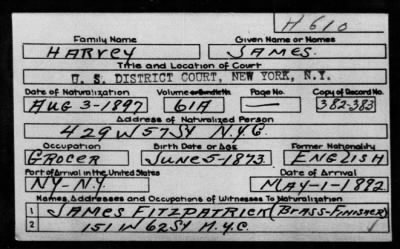 H 610
Family Name Given Name or Names
HARVEY JAMES.
Title and Location of Court
U. S. DISTRICT COURT, NEW YORK, N.Y.
Date of Naturalization Volume or Bundle No. Page No. Copy of Record No.
AUG 3-1897 61A — 382-383
Address of Naturalized Person
429 W 57 ST N.Y.C.
Occupation Birth Date or Age Former Nationality
GROCER JUNE 5-1873. ENGLISH
Port of Arrival in the United States Date of Arrival
NY-N.Y. MAY-1-1892
Names, Addresses and Occupations of Witnesses To Naturalization
1 JAMES FITZPATRICK (BRASS-FINISHER)
2 151 W 62 ST N.Y.C.